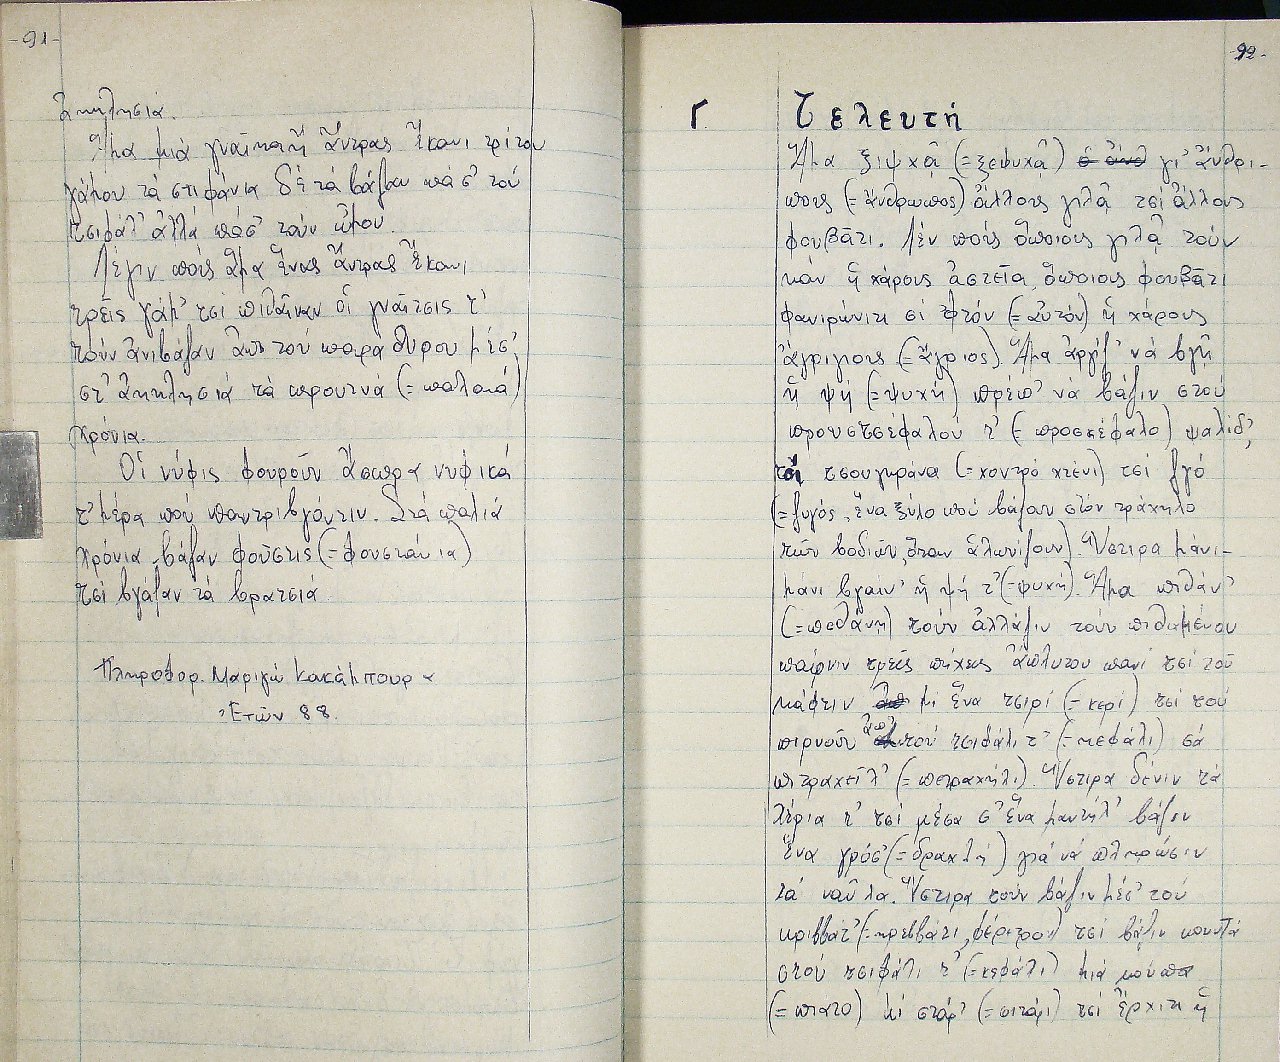 -91-
ἀκκλησιά.
Ἅμα μιὰ γναῖκα ἤ ἄντρας ἔκανι τρίτου
γάμου τὰ στιφάνια δὲ τὰ βάζαν πάσ' τοὺ
τσιφάλ' ἀλλά πάσ' τοὺν ὦμου.
Λέγιν ποὺς ἅμα ἕνας ἄντρας ἔκανι
τρεῖς γάμ' τσὶ πιθαῖναν οἱ γναῖτσις τ'
τοὺν ἀνιβάζαν ἀπ τοὺ παράθυρου μέσ'
στ' ἀκκλησιά τὰ προυτνά (=παλαιά)
χρόνια.
Οἱ νύφις φουροῦν ἄσπρα νυφικά
τ' μέρα ποὺ παντριβγόντιν. Στὰ παλιά
χρόνια βάζαν φοῦστις (=φουστάνια)
τσὶ βγάζαν τὰ βρατσιά.
Πληροφορ. Μαριγώ Κακάμπουρα
Ἐτῶν 88.
92-
Γ. Τελευτή
Ἅμα ξιψχᾷ (=ξεψυχᾷ) γι' ἄνθρι-
πους (=ἄνθρωπος) ἄλλους γιλᾷ τσὶ ἄλλους
φουβᾶτι. Λὲν ποὺς ὅποιους γιλᾷ τοὺν
κάν ἥ χάρους ἀστεῖα, ὅποιους φουβᾶτι
φανιρώνιτι σὶ φτόν (=αὐτόν) ἥ χάρους
ἄγριγιους (=ἄγριος). Ἅμα ἀργῇσ' νὰ βγῇ
ἥ ψή (=ψυχή) πρέπ' νὰ βάζιν στοὺ
προυστσέφαλού τ' (=προσκέφαλο) ψαλίδ',
τσουγκράνα (=χοντρό χτένι) τσὶ ζγό
(=ζυγός, ἕνα ξύλο ποὺ βάζαν στόν τράχηλο
τῶν βοδιῶν, ὅταν ἁλωνίζουν). Ὕστιρα μάνι-
μάνι βγαίν' ἥ ψή τ' (=ψυχή). Ἅμα πιθάν'
(=πεθάνῃ) τοὺν ἀλλάζιν τοὺν πιθαμένου
παίρνιν τρεῖς πήχεις ἀπλυτου πανί τσὶ τοῦ
κάφτιν μὶ ἕνα τσιρί (=κερί) τσὶ τοὺ
πιρνοῦν ἀπ' τοὺ τσιφάλι τ' (=κεφάλι) σὰ
πιτραχεῖλ' (=πετραχήλι). Ὕστιρα δένιν τὰ
χέρια τ' τσὶ μέσα σ' ἕνα μαντήλ' βάζιν
ἕνα γρόσ' (=δραχμή) γιά νὰ πληρώσιν
τὰ ναῦλα. Ὕστιρα τοὺν βάζιν μέσ' τοὺ
κριββάτ' (=κρεββάτι, φέρετρον) τσὶ βάζιν κουντά
στοὺ τσιφάλι τ' (=κεφάλι) μιά κούπα
(=πιατο) μὶ στάρ' (=σιτάρι) τσὶ ἔρχιτι ἥ